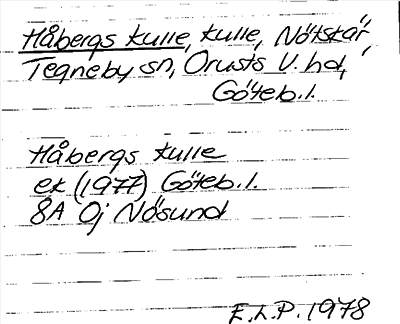 Håbergs kulle, kulle, Nötskär,
Tegneby sn, Orusts V. hd,
Göteb. l.
Håbergs kulle
ek (1977) Göteb. l.
8A 0j Nösund
E.L.P. 1978